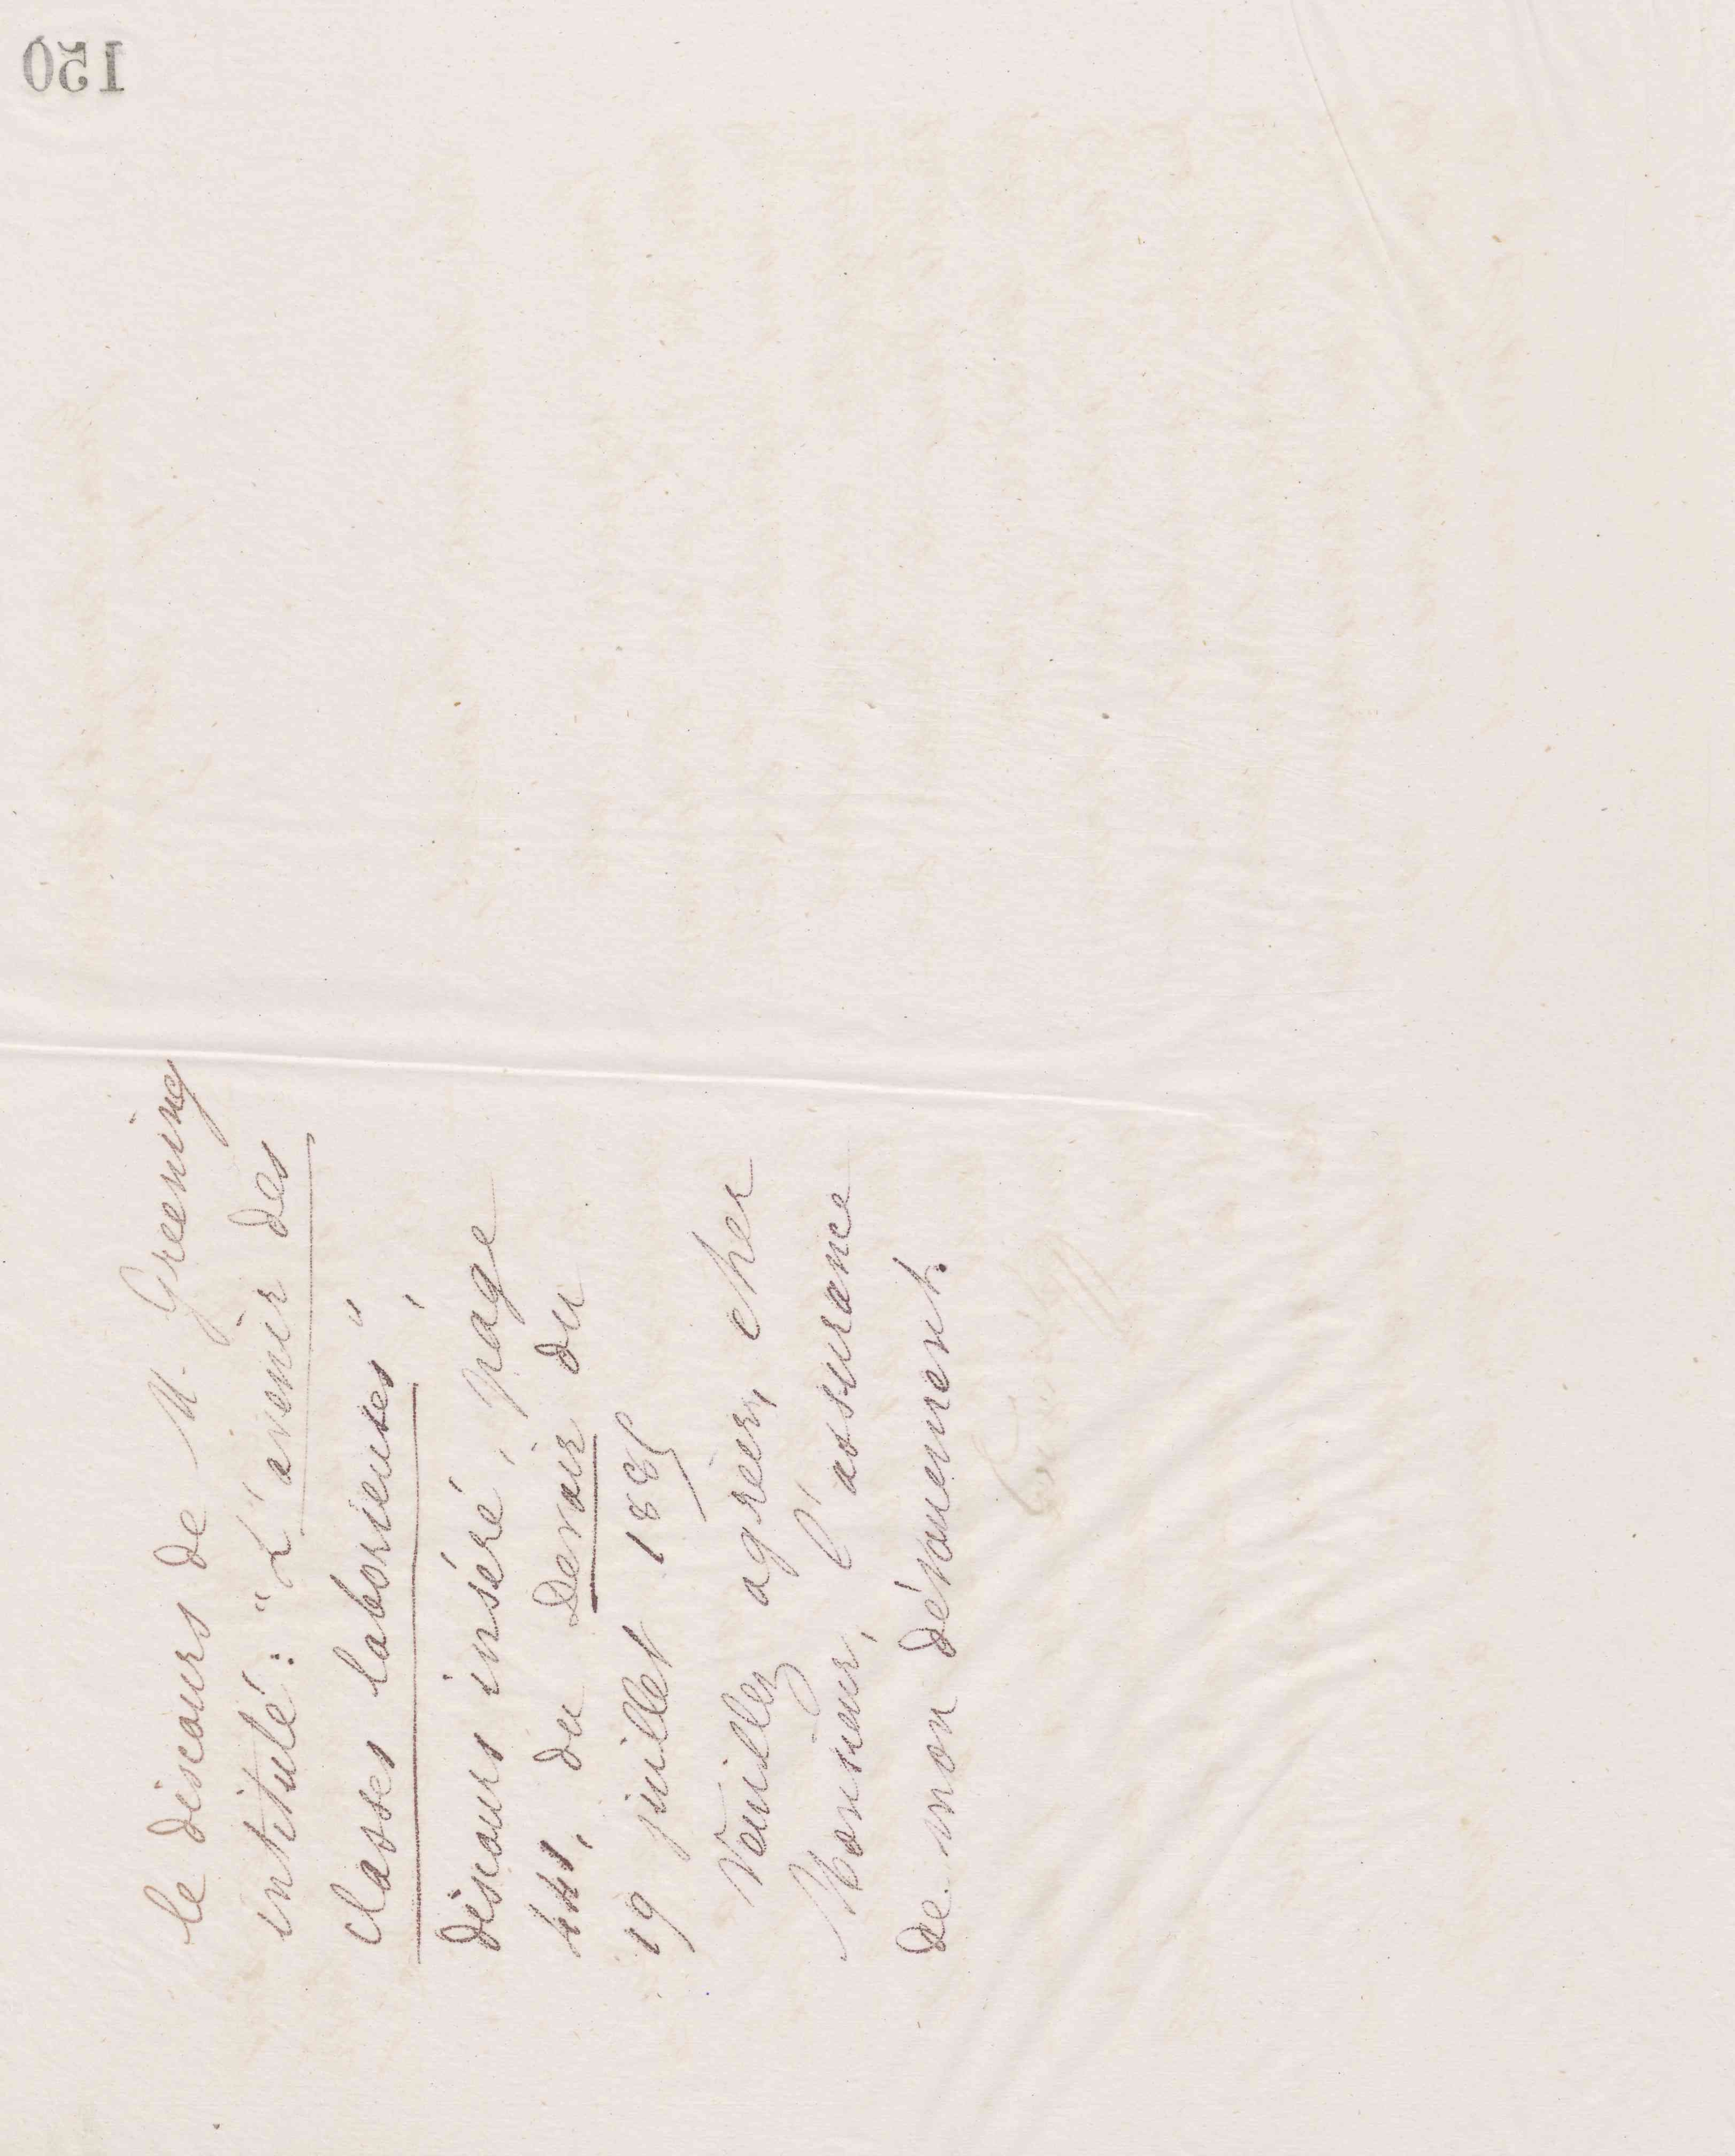 120
le discours de M. Greening
intitulé : "L'avenir des
classes laborieuses",
discours inséré, page
du Devoir du
19 juillet 1885
Veuillez agréer, cher
Monsieur, l'assurance
de mon dévouement.